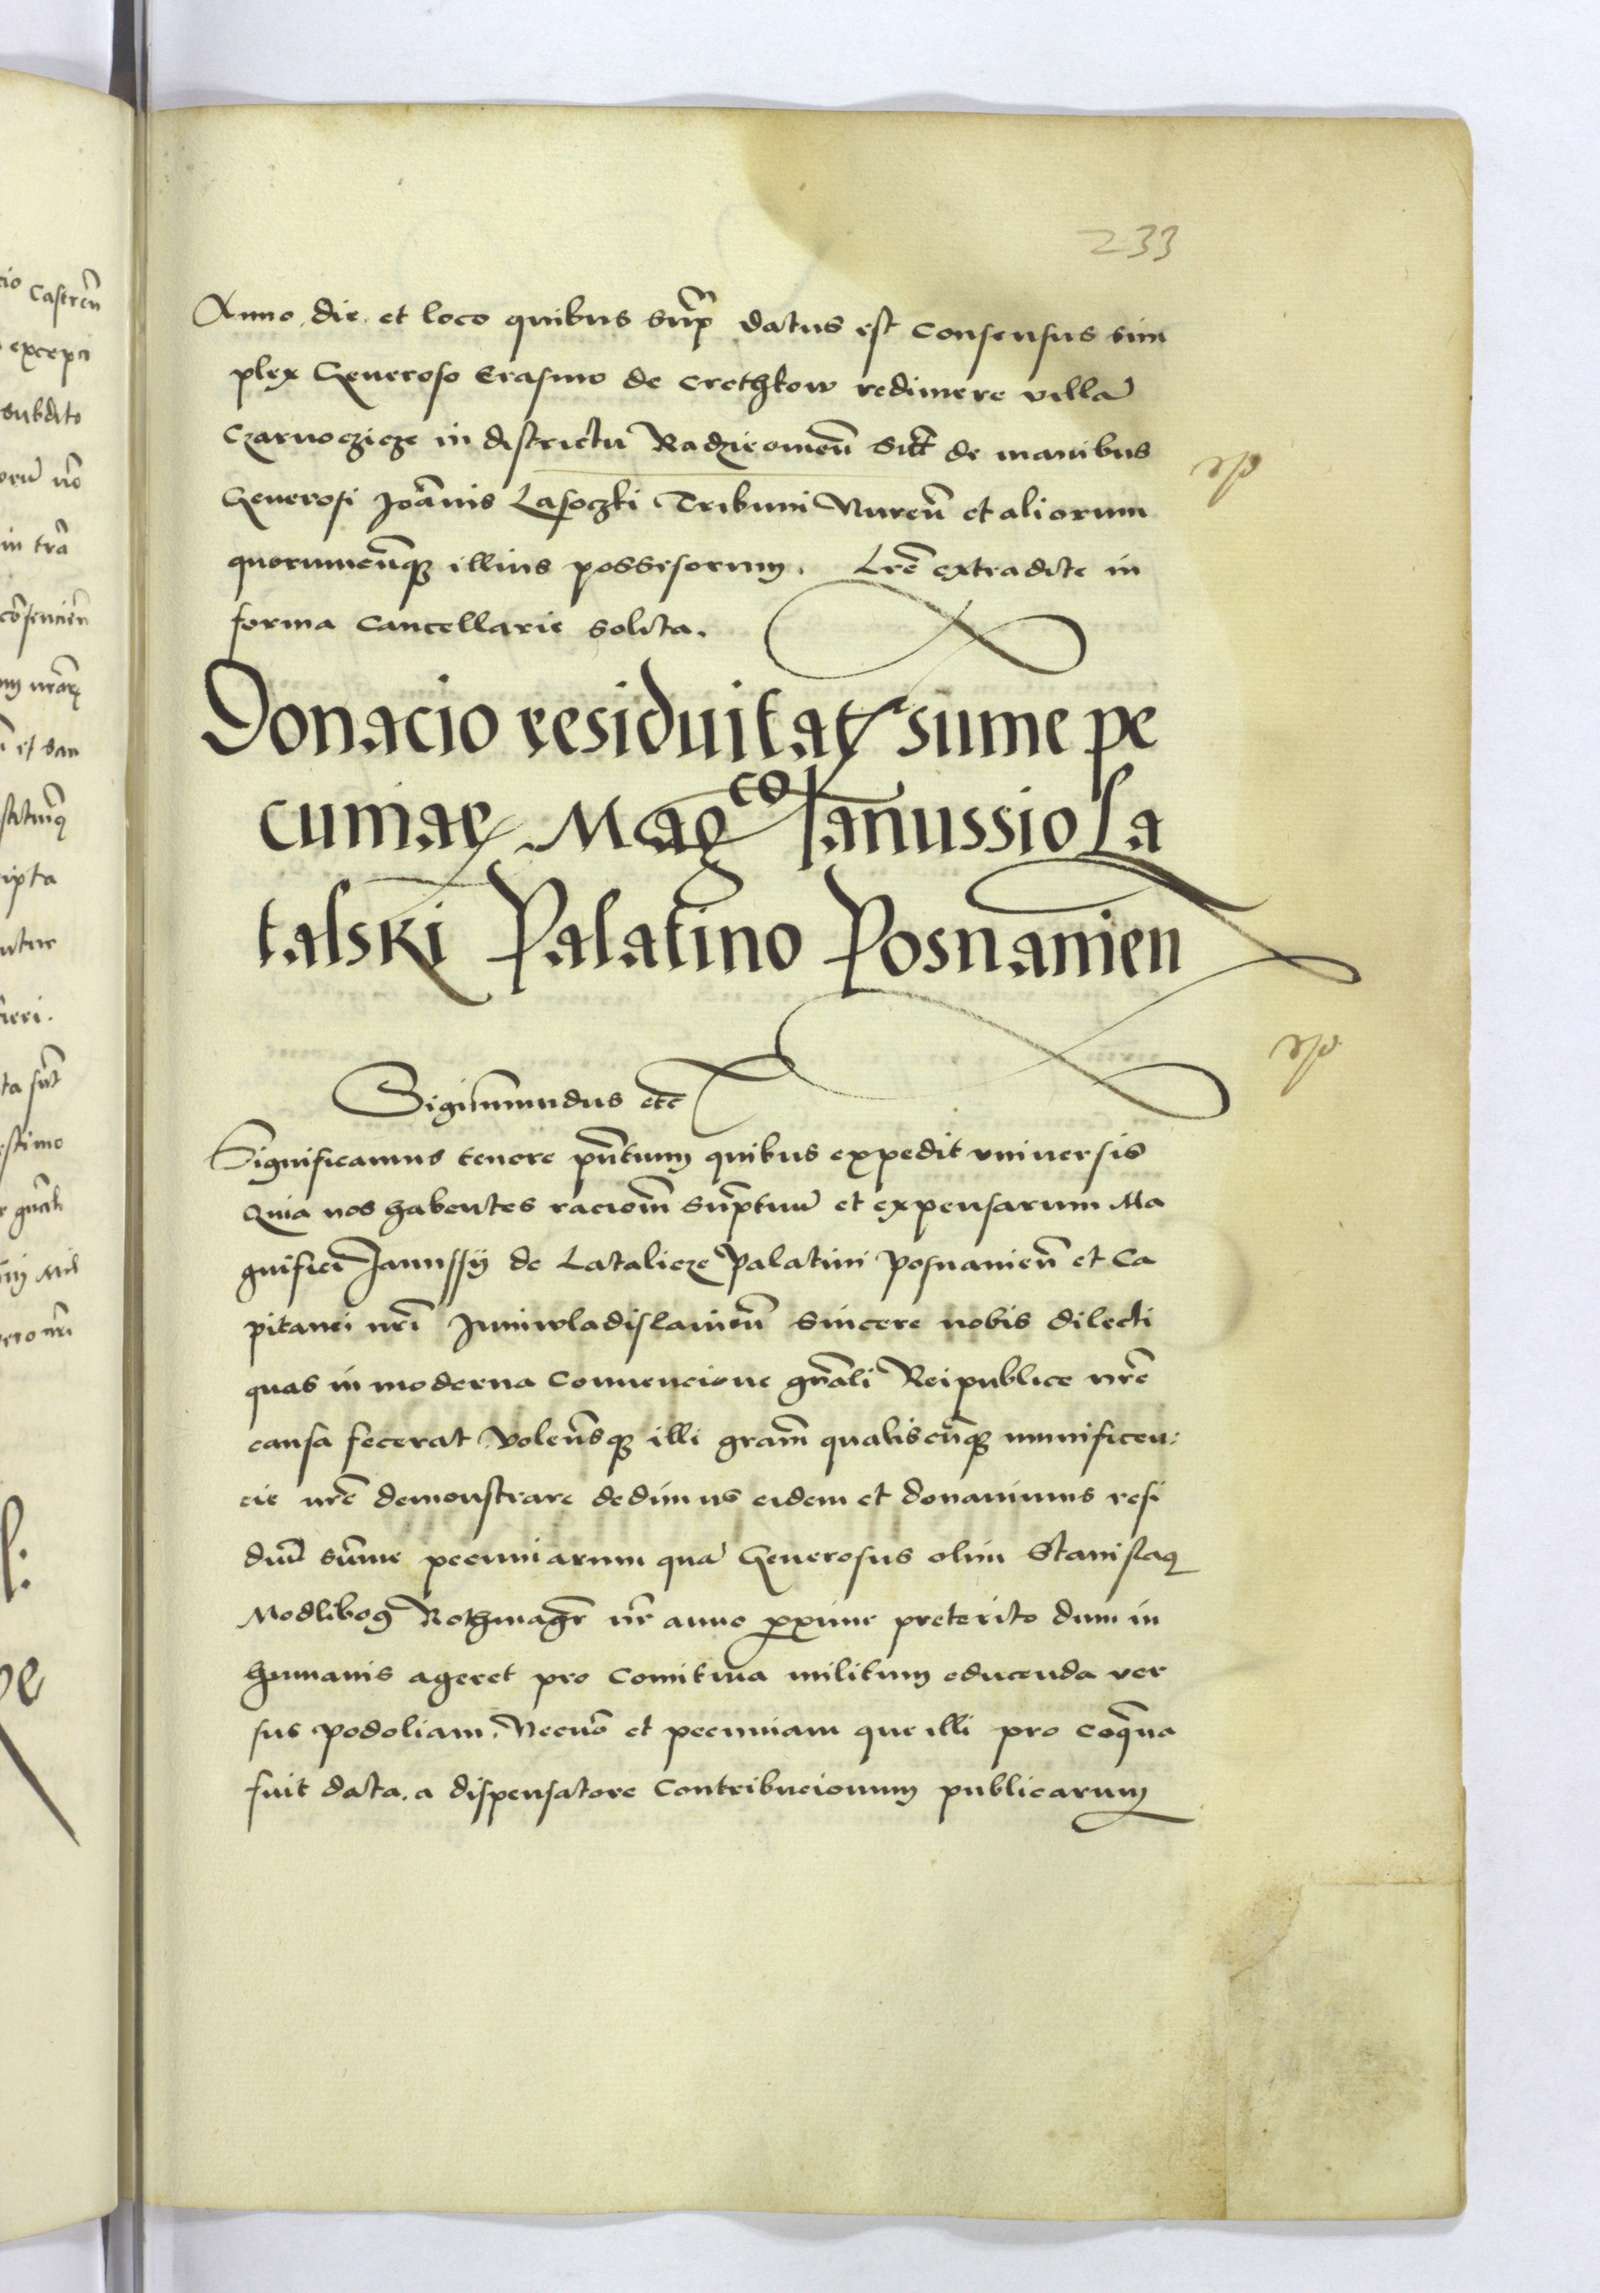 233
Anno die et loco quibus sup̃ datus est consensus sim
plex Generoso Erasmo de Crethkow redimere villã
Czarnoczicze in districtu Radzieiomeñ Sitt̃ de manibus
Generosi Joãnis Lasoczki Tribuni Nureñ et aliorum
quorumcũqȝ illius possessorum. Lrẽ extradite in
forma Cancellarie solita.
Donacio residuitatꝭ sume pe
cuniarꝝ Mag^co Ianussio La
talski Palatino Posnanien
Sigismundus etc̃
Significamus tenore pñtium quibus expedit vniversis
Quia nos habentes racioñm sũptuũ et expensarum Ma
gnifici Janussij de Latalicze Palatini Posnanieñ et Ca
pitanei nr̃i Juniwladislavieñ sincere nobis dilecti
quas in moderna Convencione gñrali Reipublice nr̃e
causa fecerat volentesqȝ illi gram̃ qualiscũqȝ munificen:
cie nr̃e demonstrare dedimus eidem et donavimus resi
duũ sũme pecuniarum quã Generosus olim Stanislaꝰ
Modlibog Rothmagr̃ nr̃ anno ꝓxime preterito dum in
humanis ageret pro Comitiva militum educenda ver
sus Podoliam. Necnõ et pecuniam que illi pro coq̃na
fuit data a dispensatore Contribucionum publicarum